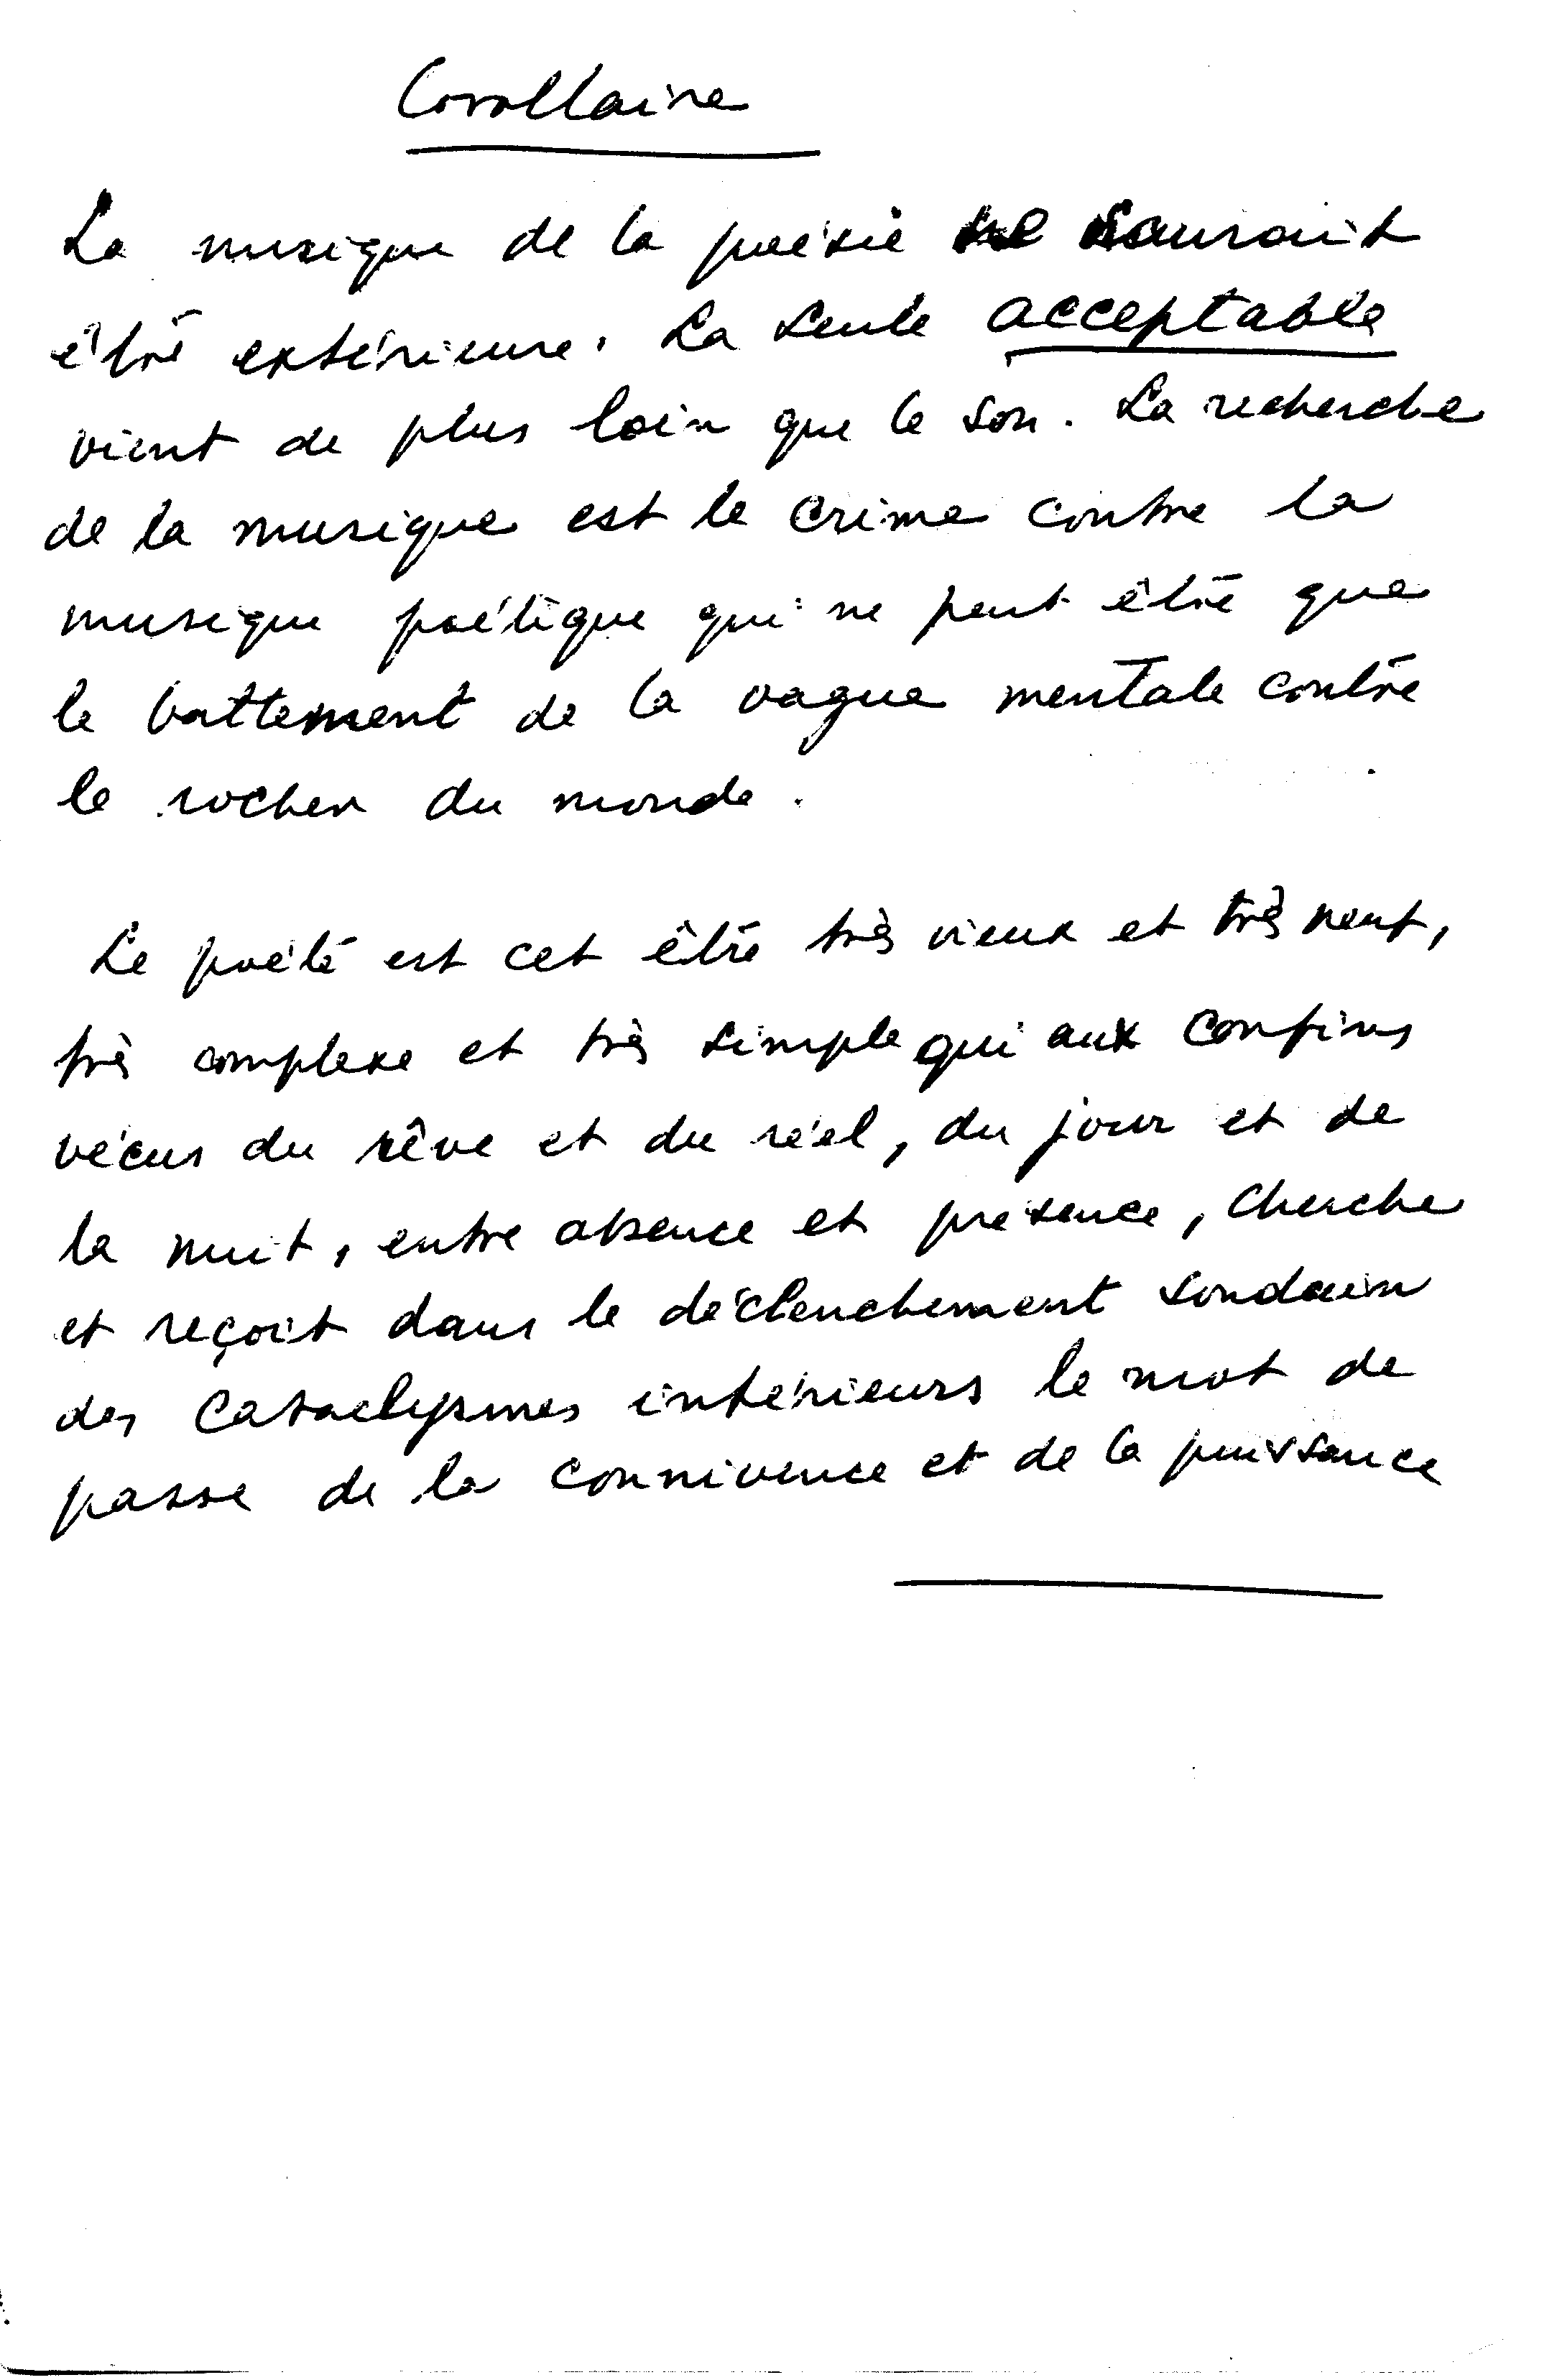 Corollaire
La musique de la poésie ne saurait
être extérieure. La seule acceptable
vient de plus loin que le son. La recherche
de la musique est le crime contre la
musique poétique qui ne peut être que
le battement de la vague mentale contre
le rocher du monde.
Le poète est cet être très vieux et très neuf,
très complexe et très simple qui aux confins
vécus du rêve et du réel, du jour et de
la nuit, entre absence et présence, cherche
et reçoit dans le déclenchement soudain
des cataclysmes intérieurs le mot de
passe de la connivence et de la puissance